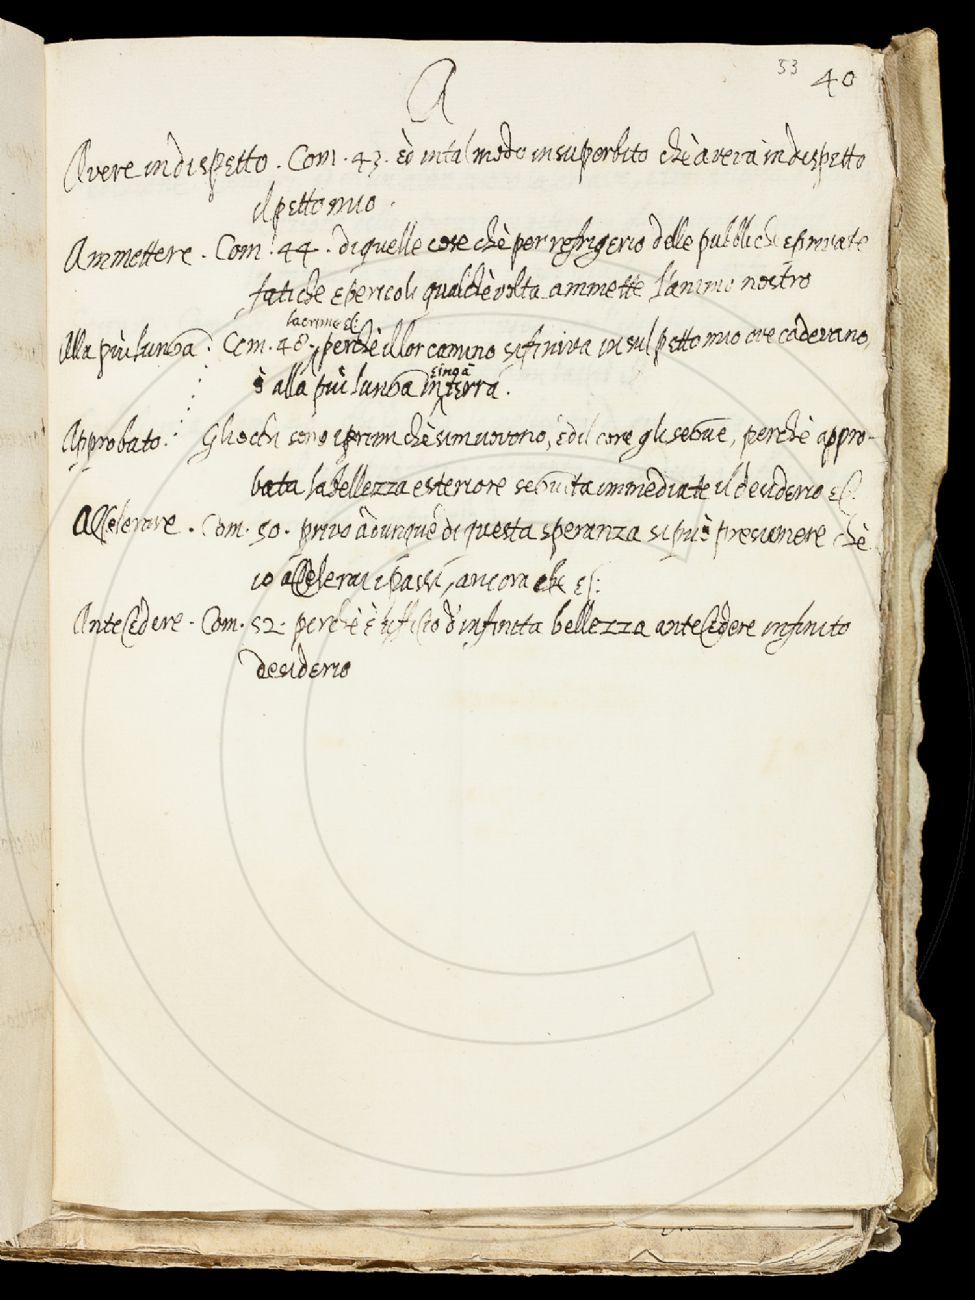 53 40
A
Avere in dispetto . Com . 43 . ed in tal modo insuperbito chè avera in dispetto
il petto mio .
Ammettere . Com . 44 . di quelle cose chè per refrigerio delle pubbliche e private
fatiche e pericoli qualche volta ammette l'animo nostro
lacrime di
Alla più lunga : Com . 48 . perchè il lor camino si finiva in sul petto mio ove cadevano,
sin a
ò alla più lunga in terra .
Approbato . : Gli occhi sono i primi chè si muovono, ed il core gli segue, perchè appro-
bata la bellezza esteriore seguita immediate il desiderio
Accelerare . Com . 50 . privo adunque di questa speranza si può presumere chè
io accelerai i passi, ancora che
Antecedere . Com . 52 . perchè è d'infinita bellezza antecedere infinito
desiderio